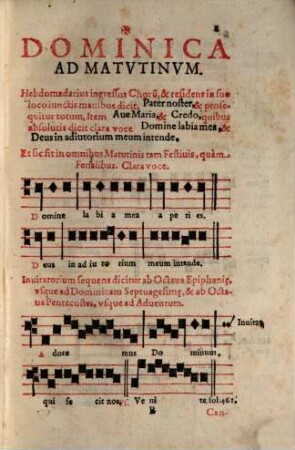 DOMINICA
AD MATVTINVM.
Hebdomadarius ingressus Chorũ, & residens in suo
loco iunctis manibus dicit. Pater noster. & prose-
quitur totum, Item Aue Maria, & Credo, quibus
absolutis dicit clara voce Domine labia mea, &
Deus in adiutorium meum intende.
Et sic fit in omnibus Matutinis tam Festiuis, quàm
Ferialibus. Clara voce.
Domine la bi a mea a pe ri es.
Deus in ad iu to rium meum intende.
Inuitatorium sequens dicitur ab Octaua Epiphanię,
vsque ad Dominicam Septuagesimę, & ab Octa-
ua Pentecostes, vsque ad Aduentum.
Inuitat.
A dore mus Do minum,
qui fe cit nos. ps. Ve ni te. fol. 461.
Can-